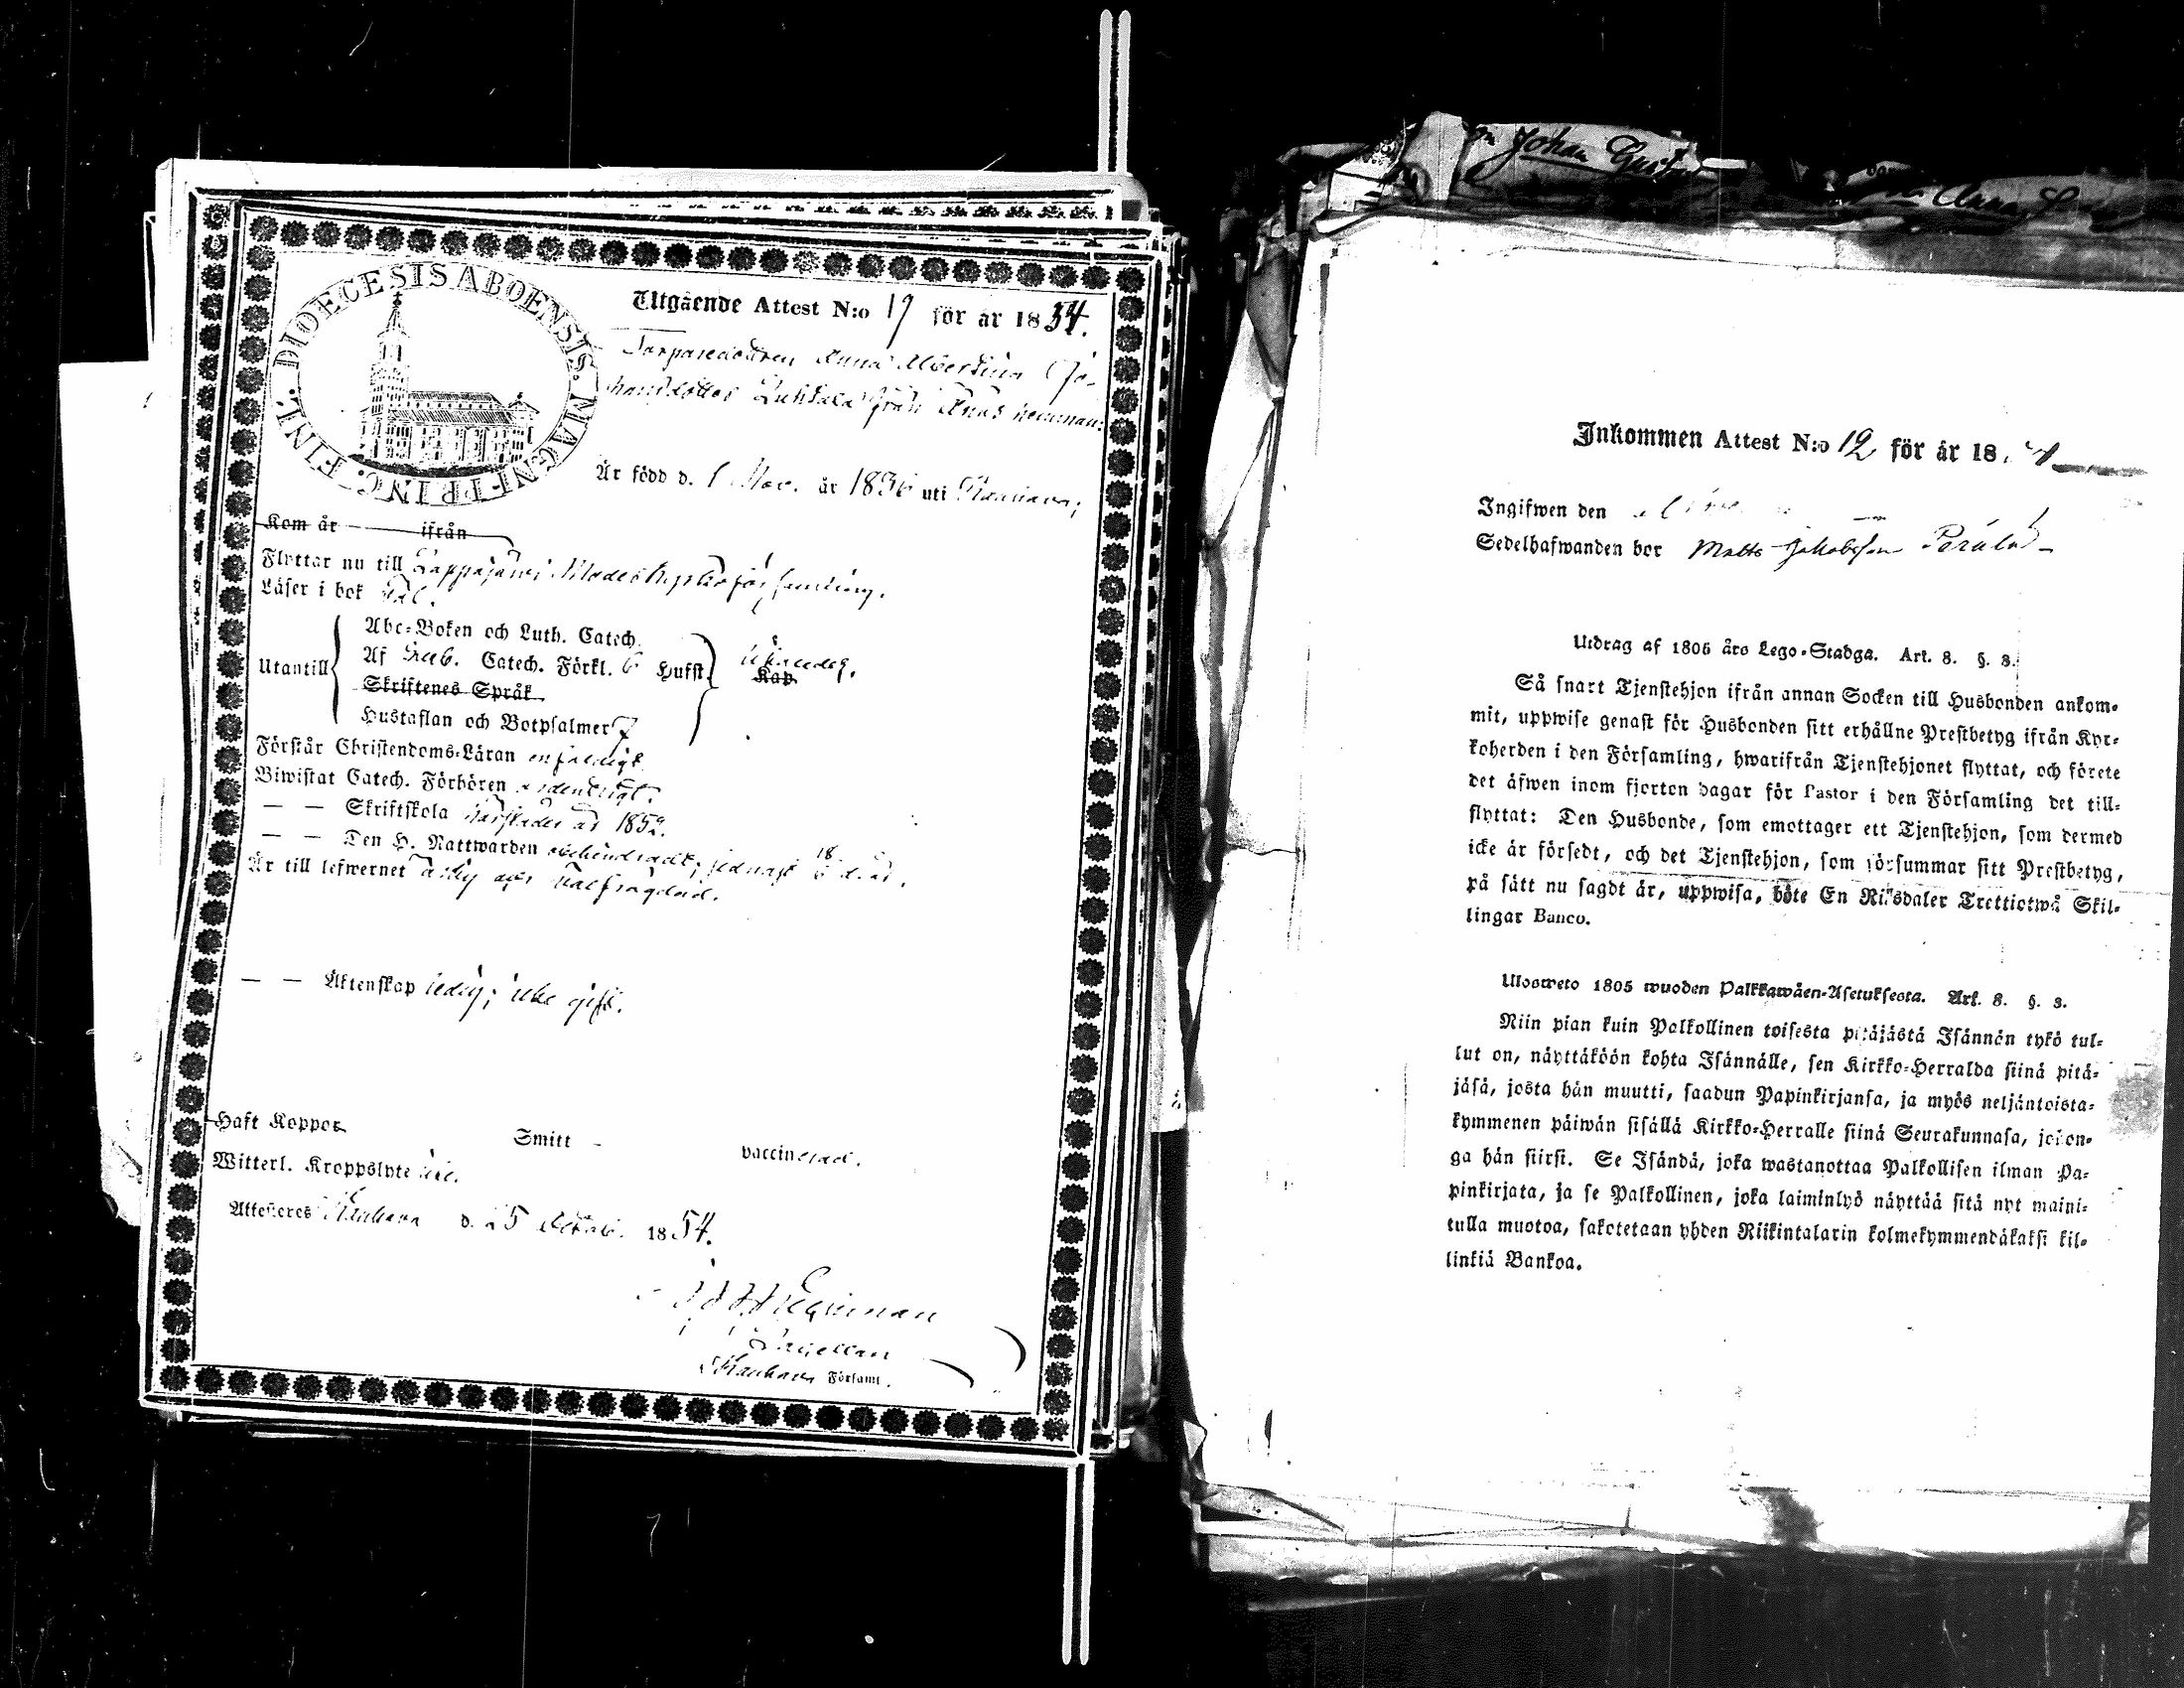 DIOECESIS ABOENSIS. MAGN. PRINC. FINL.
Utgående Attest N:o 19 för år 1854.
Torparedottren Anna Albertina Jo-
hansdotter Luhtala från Knus hemman.
Är född d. 1 Nov. år 1836 uti Kauhava;
Kom år ifrån
Flyttar nu till Lappajärvi Moderkyrkoförsamling.
Läser i bok väl.
Utantill
Abc-Boken och Luth. Catech.
Af Catech. Förkl. 6 Hufst.
Kap
Skriftenes Språk
Hustaflan och Botpsalmer 7
Förstår Christendoms-Läran enfaldigt
Biwistat Catech. Förhören ordentligt.
— — Skriftskola år 1852.
— — Den H. Nattwarden sednast 18/6 d. år.
Är till lefwernet ärlig och välfrägdad.
— — Äktenskap ledig; icke gift.
Haft Koppor Smitt - vaccinerad.
Witterl. Kroppslyte
Attesteres Kauhava d. 25 1854.
Capellan
Kauhava Församl.
Johan Gust
Anna
Inkommen Attest N:o 12 för år 18
Ingifwen den
Sedelhafwanden bor Matts Jakobsson
Utdrag af 1805 års Lego-Stadga. Art. 8. §. 3.
Så snart Tjenstehjon ifrån annan Socken till Husbonden ankom-
mit, uppwise genast för Husbonden sitt erhållne Prestbetyg ifrån Kyr-
koherden i den Församling, hwarifrån Tjenstehjonet flyttat, och förete
det äfwen inom fjorton dagar för Pastor i den Församling det till-
flyttat: Den Husbonde, som emottager ett Tjenstehjon, som dermed
icke är försedt, och det Tjenstehjon, som försummar sitt Prestbetyg,
på sätt nu sagdt är, uppwisa, böte En Riksdaler Trettiotwå Skil-
lingar Banco.
Ulosweto 1805 wuoden Palkkawäen-Asetuksesta. Art. 8. §. 3.
Niin pian kuin Palkollinen toisesta pitäjästä Isännän tykö tul-
lut on, näyttäköön kohta Isännälle, sen Kirkko-Herralda siinä pitä-
jäsä, josta hän muutti, saadun Papinkirjansa, ja myös neljäntoista-
kymmenen päiwän sisällä Kirkko-Herralle siinä Seurakunnasa, johon-
ga hän siirsi. Se Isändä, joka wastanottaa Palkollisen ilman Pa-
pinkirjata, ja se Palkollinen, joka laiminlyö näyttää sitä nyt maini-
tulla muotoa, sakotetaan yhden Riikintalarin kolmekymmendäkaksi kil-
linkiä Bankoa.